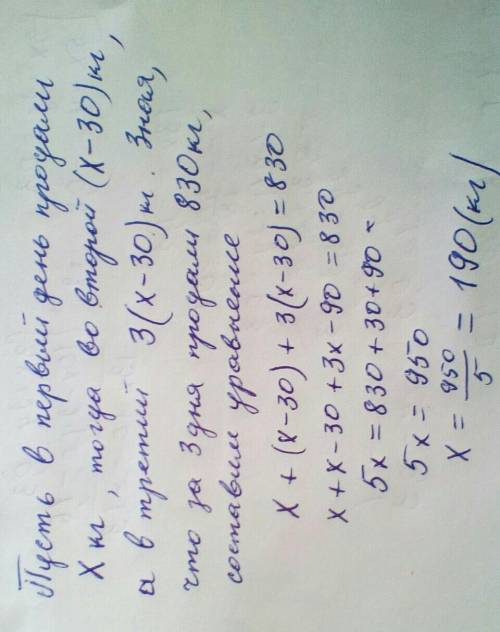 Пусть в первый день продали
X кг, тогда во второй (x-30) кг,
а в третий 3(x-30) кг. Зная,
что за 3 дня продали 830 кг,
составим уравнение
x + (x-30) + 3(x-30) = 830
x+x-30+3x-90 = 830
5x = 830+30+90
5x = 950
x = 950/5 = 190 (кг)